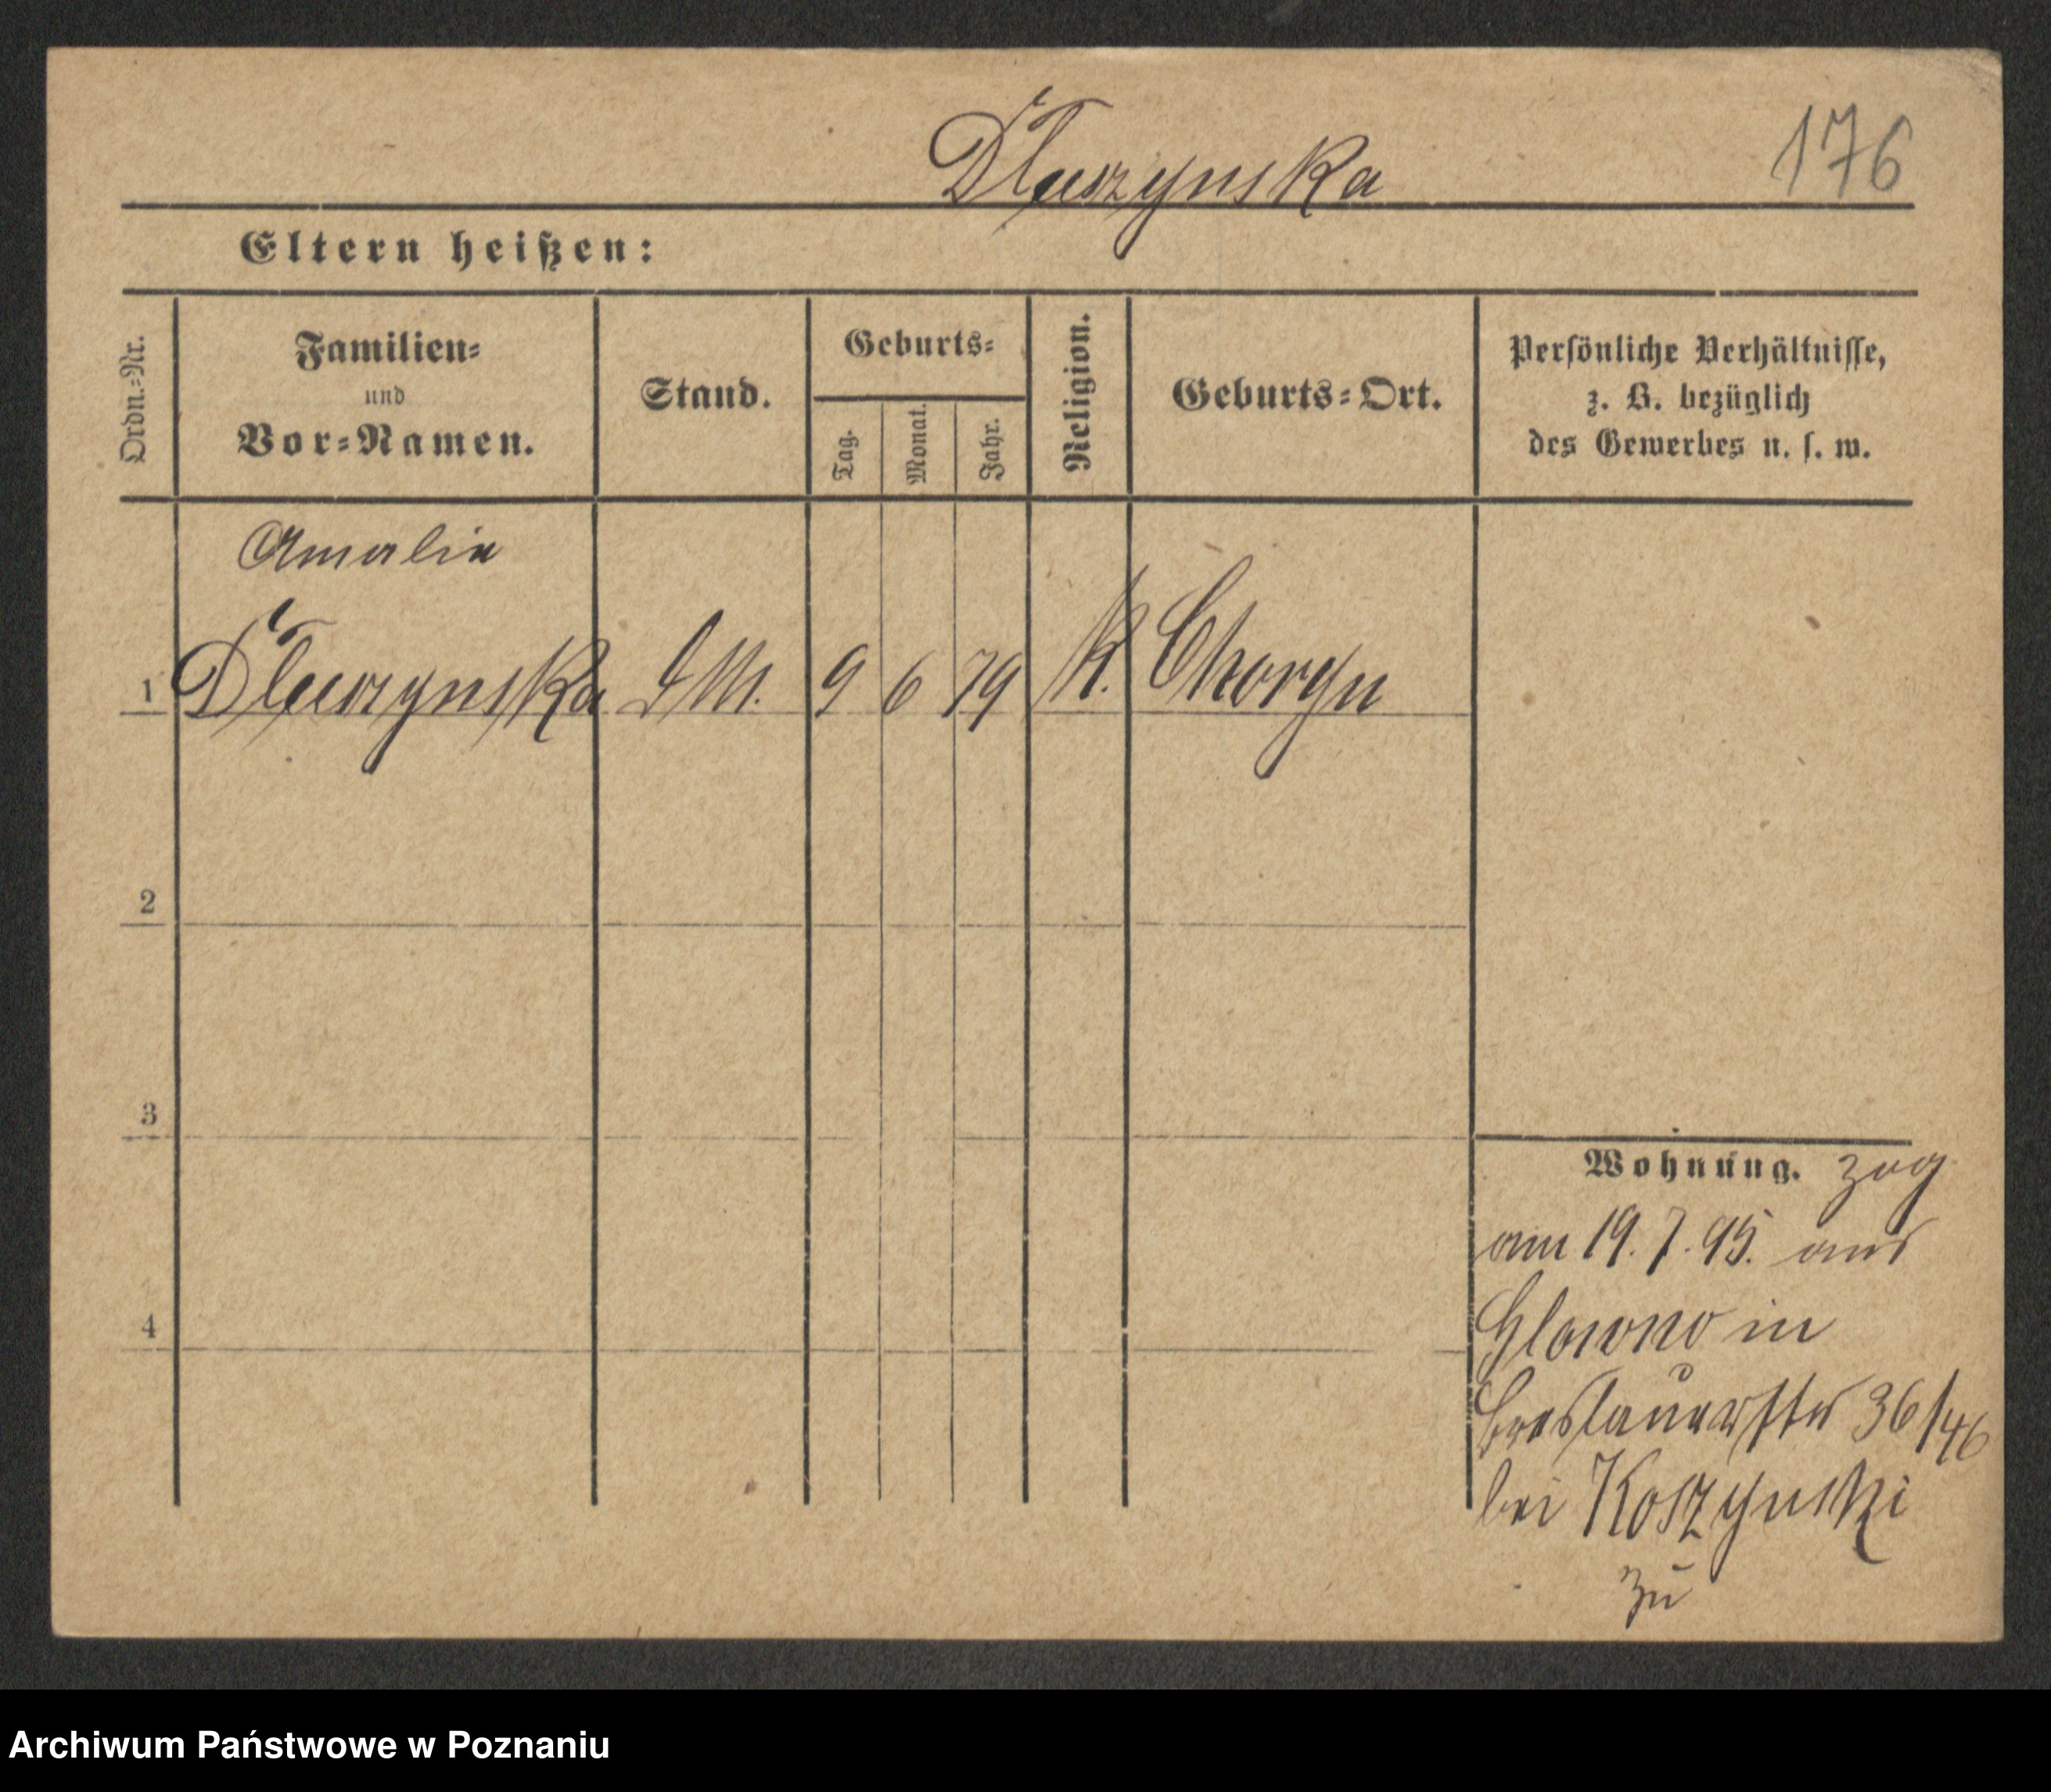 Dłuszynska 176
Eltern heißen:
Ordn.-Nr.
Familien-
und
Vor-Namen.
Stand.
Geburts-
Tag.
Monat.
Jahr.
Religion.
Geburts-Ort.
Persönliche Verhältnisse,
z. B. bezüglich
des Gewerbes u. s. w.
Amalie
1 Dłuszynska D M. 9 6 79 K. Choryn
2
3
4
Wohnung. zog
am 19. 7. 95. aus
Glowno in
Breslauerstr 36/46
bei Koszynski
zu
Archiwum Państwowe w Poznaniu